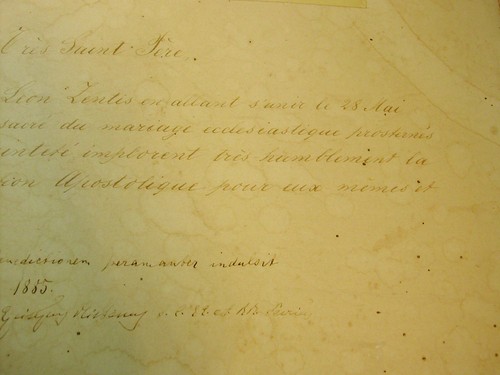 Très Saint Père.
Léon Zentis en allant s'unir le 28 Mai
sacré du mariage ecclésiastique prosternés
inteté implorent très humblement la
tion Apostolique pour eux mêmes et
nedictionem peramanter indulsit
1885.